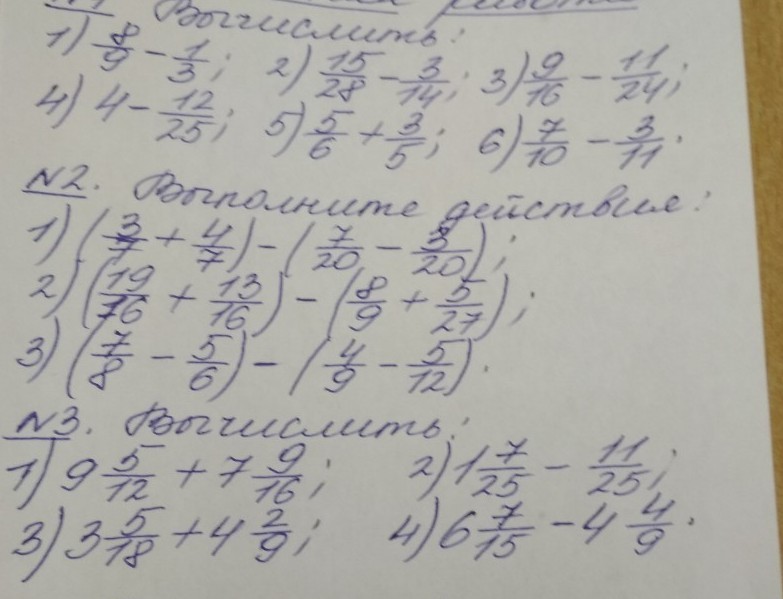 N1 Вычислить:
1) 8/9 - 1/3; 2) 15/28 - 3/14; 3) 9/16 - 11/24;
4) 4 - 12/25; 5) 5/6 + 3/5; 6) 7/10 - 3/11.
N2. Выполните действия:
1) (3/7 + 4/7) - (7/20 - 3/20);
2) (19/16 + 13/16) - (8/9 + 5/27);
3) (7/8 - 5/6) - (4/9 - 5/12).
N3. Вычислить:
1) 9 5/12 + 7 9/16; 2) 1 7/25 - 11/25;
3) 3 5/18 + 4 2/9; 4) 6 7/15 - 4 4/9.